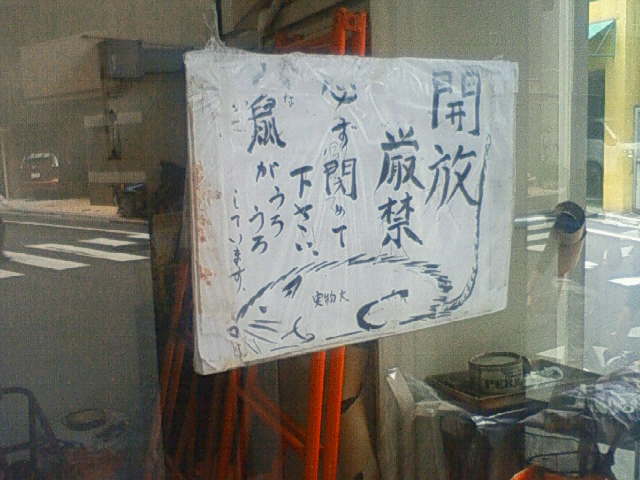 開放
厳禁
必ず閉めて
下さい、
な
鼠がうろうろ
しています。
実物大